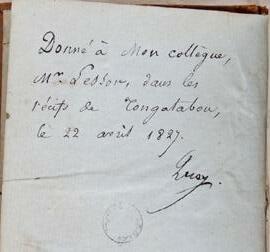 Donné à Mon collègue,
Mr. Lesson, dans les
récifs de Tongatabou,
le 22 avril 1827.
Quoy.